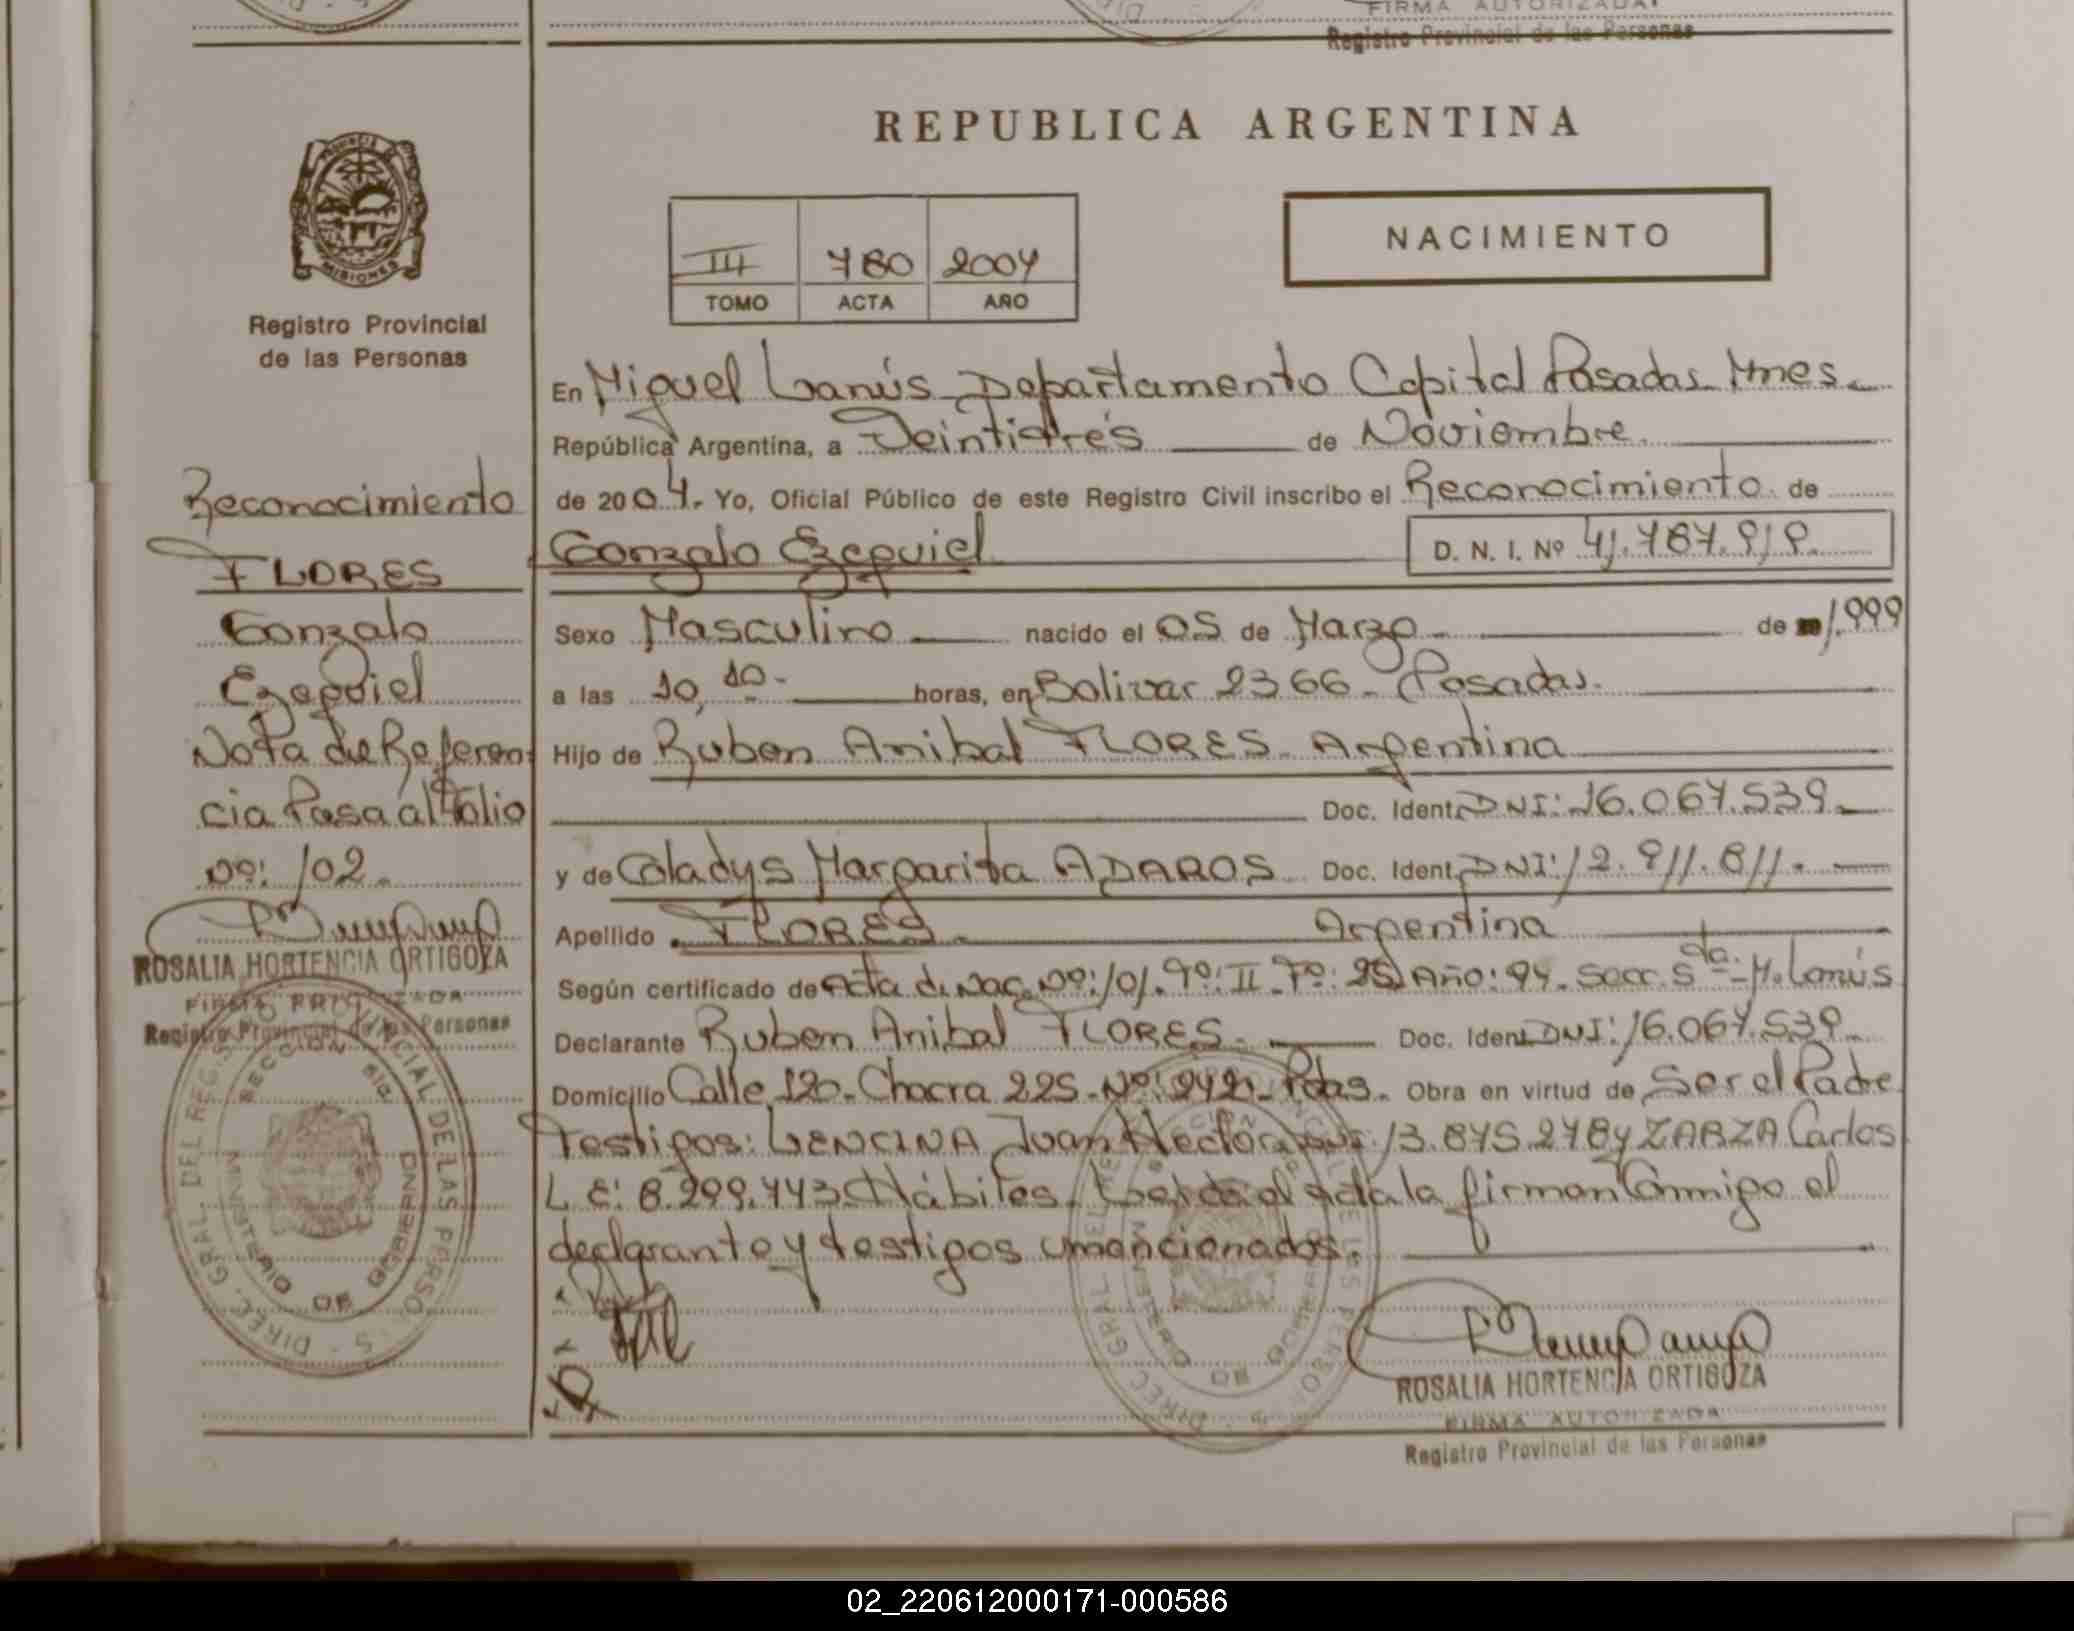 FIRMA AUTORIZADA
Registro Provincial de las Personas
REPUBLICA ARGENTINA
MISIONES
Registro Provincial
de las Personas
III 780 2004
TOMO ACTA AÑO
NACIMIENTO
En Miguel Lanús Departamento Capital Posadas Mnes
República Argentina, a Veintitrés de Noviembre
de 2004. Yo, Oficial Público de este Registro Civil inscribo el Reconocimiento de
Gonzalo Ezequiel D. N. I. Nº 41.787.919.
Sexo Masculino nacido el 05 de Marzo de 1.999
a las 10,10 horas, en Bolivar 2366 - Posadas.
Hijo de Ruben Anibal FLORES - Argentina
Doc. Ident. DNI: 16.067.539.
y de Gladys Margarita ADAROS Doc. Ident. DNI: 12.911.811.
Apellido FLORES. Argentina
Según certificado de Acta de Nac. Nº: 101. Tº: II - Fº: 25 Año: 94. Secc. 5ta. M. Lanús
Declarante Ruben Anibal FLORES. Doc. Ident. DNI: 16.067.539.
Domicilio Calle 120 - Chacra 225 - Nº: 242 - Pdas. Obra en virtud de Ser el Padre
Testigos: LENCINA Juan Hector 13.875.278 y ZARZA Carlos
L.E: 8.299.443 Hábiles - Leída el acta la firman Conmigo el
declarante y testigos
Reconocimiento
FLORES
Gonzalo
Ezequiel
Nota de Referen
cia Pasa al Folio
Nº: 102.
ROSALIA HORTENCIA ORTIGOZA
FIRMA AUTORIZADA
Registro Provincial de las Personas
DIREC. GRAL. DEL REGISTRO PROVINCIAL DE LAS PERSONAS
MINISTERIO DE GOBIERNO
ROSALIA HORTENCIA ORTIGOZA
FIRMA AUTORIZADA
Registro Provincial de las Personas
02_220612000171-000586